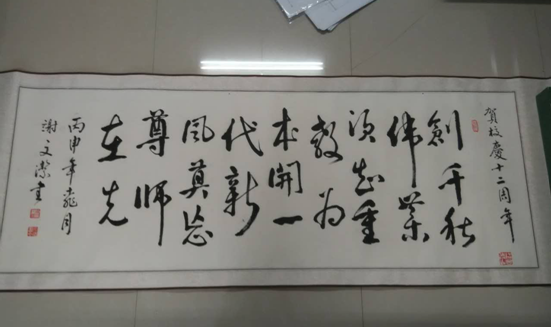 賀校慶十二周年
創千秋
偉業
須知重
教為
本開一
代新
風莫忘
尊師
在先
丙申年月
謝文潔書